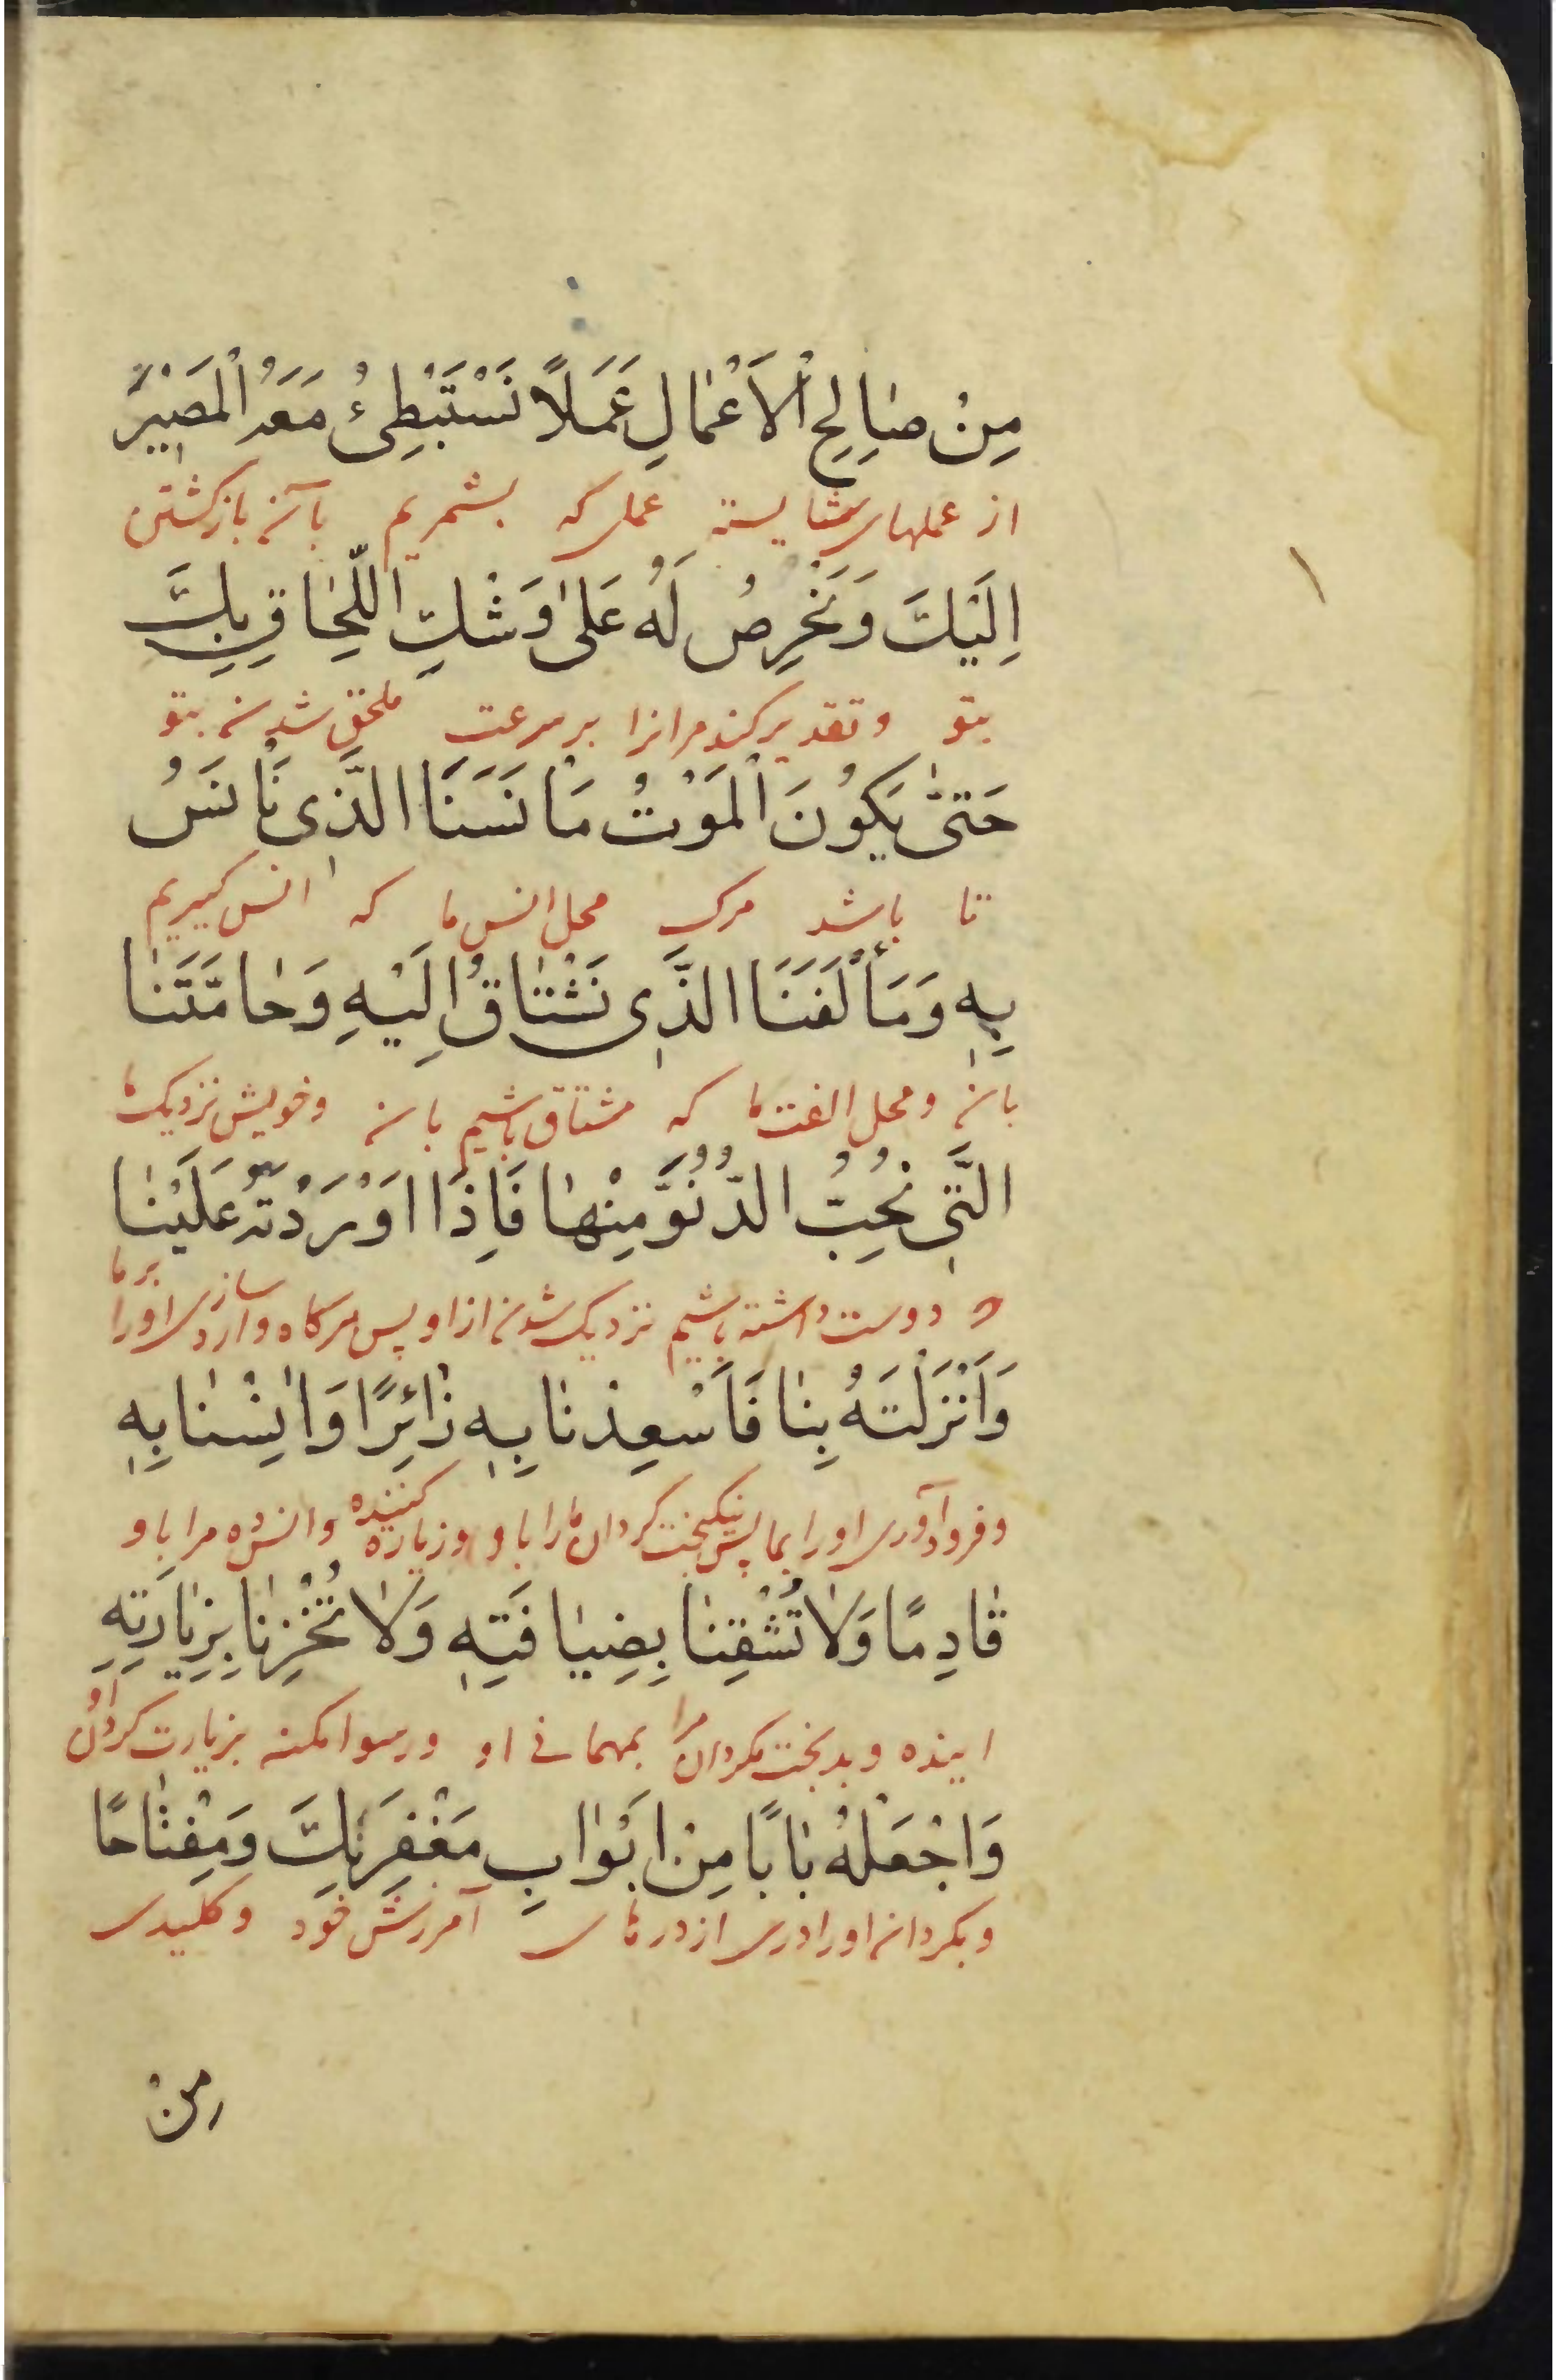 مِنْ صٰالِحِ الْاَعْمٰالِ عَمَلاً نَسْتَبْطِئُ مَعَهُ الْمَصٖيْرَ
از عملهای شایسته عملی که بشمریم بآن بازکشتن
اِلَيْكَ وَنَخْرِصُ لَهُ عَلىٰ وَشْكِ اللَّحٰاقِ بِكَ
بتو وتقدیر کند مرانرا بر سرعت ملحق شدن بتو
حَتىّٰ يَكُونَ الْمَوْتُ مَاْنَسَنَا الَّذٖى نَاْنَسُ
تا باشد مرک محل انس ما که انس کیریم
بِهٖ وَمَأْلَفَنَا الَّذٖى نَشْتٰاقُ اِلَيْهِ وَحٰامَّتَنٰا
بان ومحل الفت ما که مشتاق باشیم بان وخویش نزدیک ما
الَّتٖى نُحِبُّ الدُّنُوَّ مِنْهٰا فَاِذَا اَوْرَدْتَهُ عَلَيْنٰا
دوست داشته باشیم نزدیک شدن از او پس هرکاه وارد سازی اورا بر ما
وَاَنْزَلْتَهُ بِنٰا فَاَسْعِدْنٰا بِهٖ زٰائِرًا وَاٰنِسْنٰا بِهٖ
وفرود آوری اورا بما پس نیکبخت کردان مارا باو وزیاره کننده وانس ده مرا باو
قٰادِمًا وَلاٰ تُشْقِنٰا بِضِيٰافَتِهٖ وَلاٰ تُخْزِنٰا بِزِيٰارَتِهِ
اینده وبدبخت مکردان مرا بمهمانی او ورسوا مکن بزیارت کردن او
وَاجْعَلْهُ بٰابًا مِنْ اَبْوٰابِ مَغْفِرَتِكَ وَمِفْتٰاحًا
وبکردان اورا دری از درهای آمرزش خود وکلیدی
مِنْ